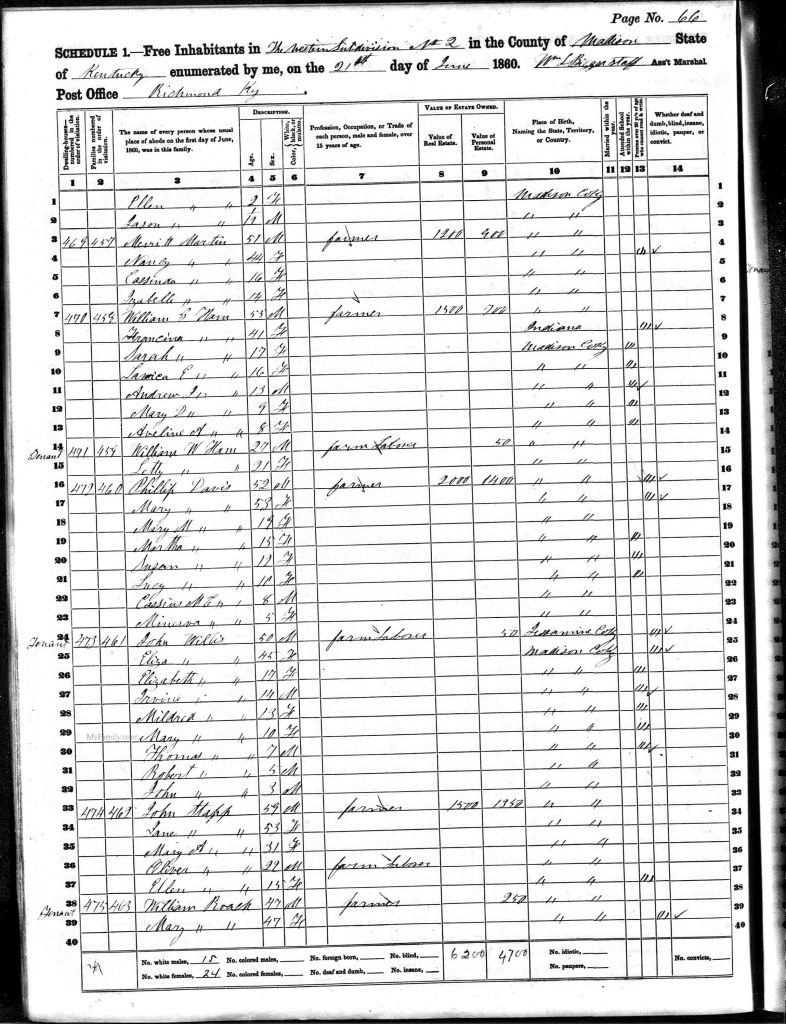 Page No. 66
SCHEDULE 1.—Free Inhabitants in The Western Subdivision No 2 in the County of Madison State
of Kentucky enumerated by me, on the 21st day of June 1860. Ass't Marshal
Post Office Richmond Ky
Dwelling-houses—numbered in the order of visitation.
Families numbered in the order of visitation.
The name of every person whose usual place of abode on the first day of June, 1860, was in this family.
DESCRIPTION.
Age.
Sex.
Color, White, black, or mulatto.
Profession, Occupation, or Trade of each person, male and female, over 15 years of age.
VALUE OF ESTATE OWNED.
Value of Real Estate.
Value of Personal Estate.
Place of Birth, Naming the State, Territory, or Country.
Married within the year.
Attended School within the year.
Persons over 20 years of age who cannot read & write.
Whether deaf and dumb, blind, insane, idiotic, pauper, or convict.
1 2 3 4 5 6 7 8 9 10 11 12 13 14
1 Ellen " " 2 F Madison Coty 1
2 Jason " " M " " 2
3 469 457 Merritt Martin 51 M farmer 1200 900 " " 3
4 Nancy " " 44 F " " 4
5 Cassinda " " 16 F " " 5
6 Izabelle " " 14 F " " 6
7 470 458 William Ham 55 M farmer 1500 700 " " 7
8 Francina " " 41 F Indiana 8
9 Sarah " " 17 F Madison Coty 9
10 E " " 16 F " " 10
11 Andrew J " " 13 M " " 11
12 Mary D " " 9 F " " 12
13 Aveline A " " 8 F " " 13
Tenant 14 471 459 William W Ham 27 M farm Laborer 50 " " 14
15 Letty " " 21 F " " 15
16 472 460 Phillip Davis 52 M farmer 2000 1400 " " 16
17 Mary " " 53 F " " 17
18 Mary M " " 19 F " " 18
19 Martha " " 15 F " " 19
20 Susan " " 12 F " " 20
21 Lucy " " 10 F " " 21
22 Cassius M C " " 8 M " " 22
23 Minerva " " 5 F " " 23
Tenant 24 473 461 John Willis 50 M farm Laborer 50 Jessamine Coty 24
25 Eliza " " 45 F Madison Coty 25
26 Elizabeth " " 17 F " " 26
27 Irvine " " 14 M " " 27
28 Mildred " " 13 F " " 28
29 Mary " " 10 F " " 29
MyFamily.com
30 Thomas " " 7 M " " 30
31 Robert " " 5 M " " 31
32 John " " 3 M " " 32
33 474 462 John 59 M farmer 1500 1350 " " 33
34 Jane " " 53 F " " 34
35 Mary A " " 31 F " " 35
36 Oliver " " 22 M farm Laborer " " 36
37 Ellen " " 15 F " " 37
Tenant 38 475 463 William Roach 47 M farmer 250 " " 38
39 Mary " " 47 F " " 39
40 40
No. white males, 15 No. colored males, No. foreign born, No. blind, 6200 4700 No. idiotic, No. convicts,
No. white females, 24 No. colored females, No. deaf and dumb, No. insane, No. paupers,